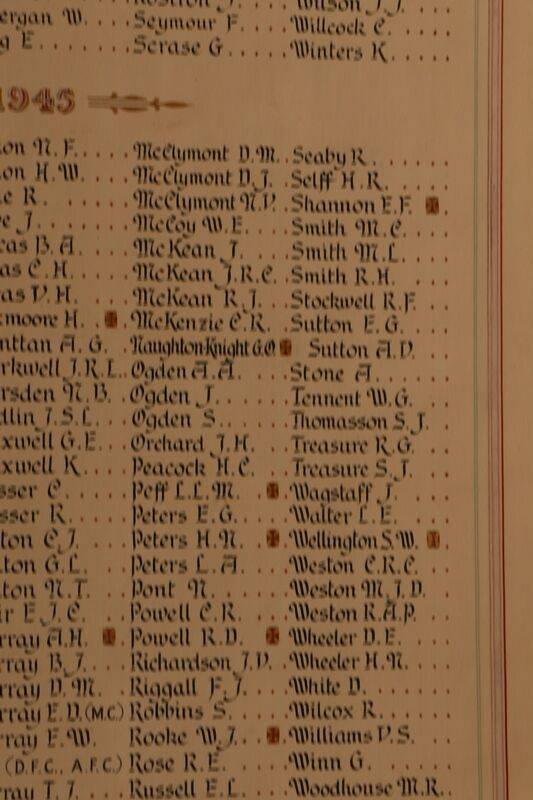 ergan W. .... Seymour F. .... Willcock C. ....
g E. .... Scrase G. .... Winters K. ....
1945
on N.F. .... McClymont D.M. .. Seaby R. ....
on H.W. .... McClymont D.J. .. Selff H.R. ....
e R. .... McClymont N.V. .. Shannon E.F.
e J. .... McCoy W.E. .... Smith M.C. ....
cas B.A. .... McKean J. .... Smith M.L. ....
as C.H. .... McKean J.R.C. .. Smith R.H. ....
as V.H. .... McKean R.J. .... Stockwell R.F. ....
moore H. .. McKenzie C.R. .. Sutton E.G. ....
nttan A.G. Naughton-Knight G.O. Sutton A.V. ....
rkwell J.R.L. .. Ogden A.A. .... Stone A. ....
rsden N.B. .. Ogden J. .... Tennent W.G. ....
dlin J.S.L. ... Ogden S. .... Thomasson S.J. ..
xwell G.E. ... Orchard J.H. ... Treasure R.G. ...
xwell K. .... Peacock H.C. ... Treasure S.J. ...
sser C. .... Peff L.L.M. .. Wagstaff J. ....
sser R. .... Peters E.G. .... Walter L.E. ....
ton C.J. ... Peters H.N. .. Wellington S.W.
ton G.L. ... Peters L.A. .... Weston C.R.C. ...
ton N.T. ... Pont N. .... Weston M.J.D. ..
ir E.J.C. ... Powell C.R. .... Weston R.A.P. ...
rray A.H. Powell R.D. .. Wheeler D.E. ....
rray B.J. ... Richardson J.V. .. Wheeler H.N. ....
rray D.M. .. Riggall F.J. .... White D. ....
rray E.D. (M.C.) Robbins S. .... Wilcox R. ....
rray F.W. Rooke W.J. .. Williams V.S. ....
(D.F.C., A.F.C.) Rose R.E. .... Winn G. ....
rray T.J. .. Russell E.L. .... Woodhouse M.R. ..